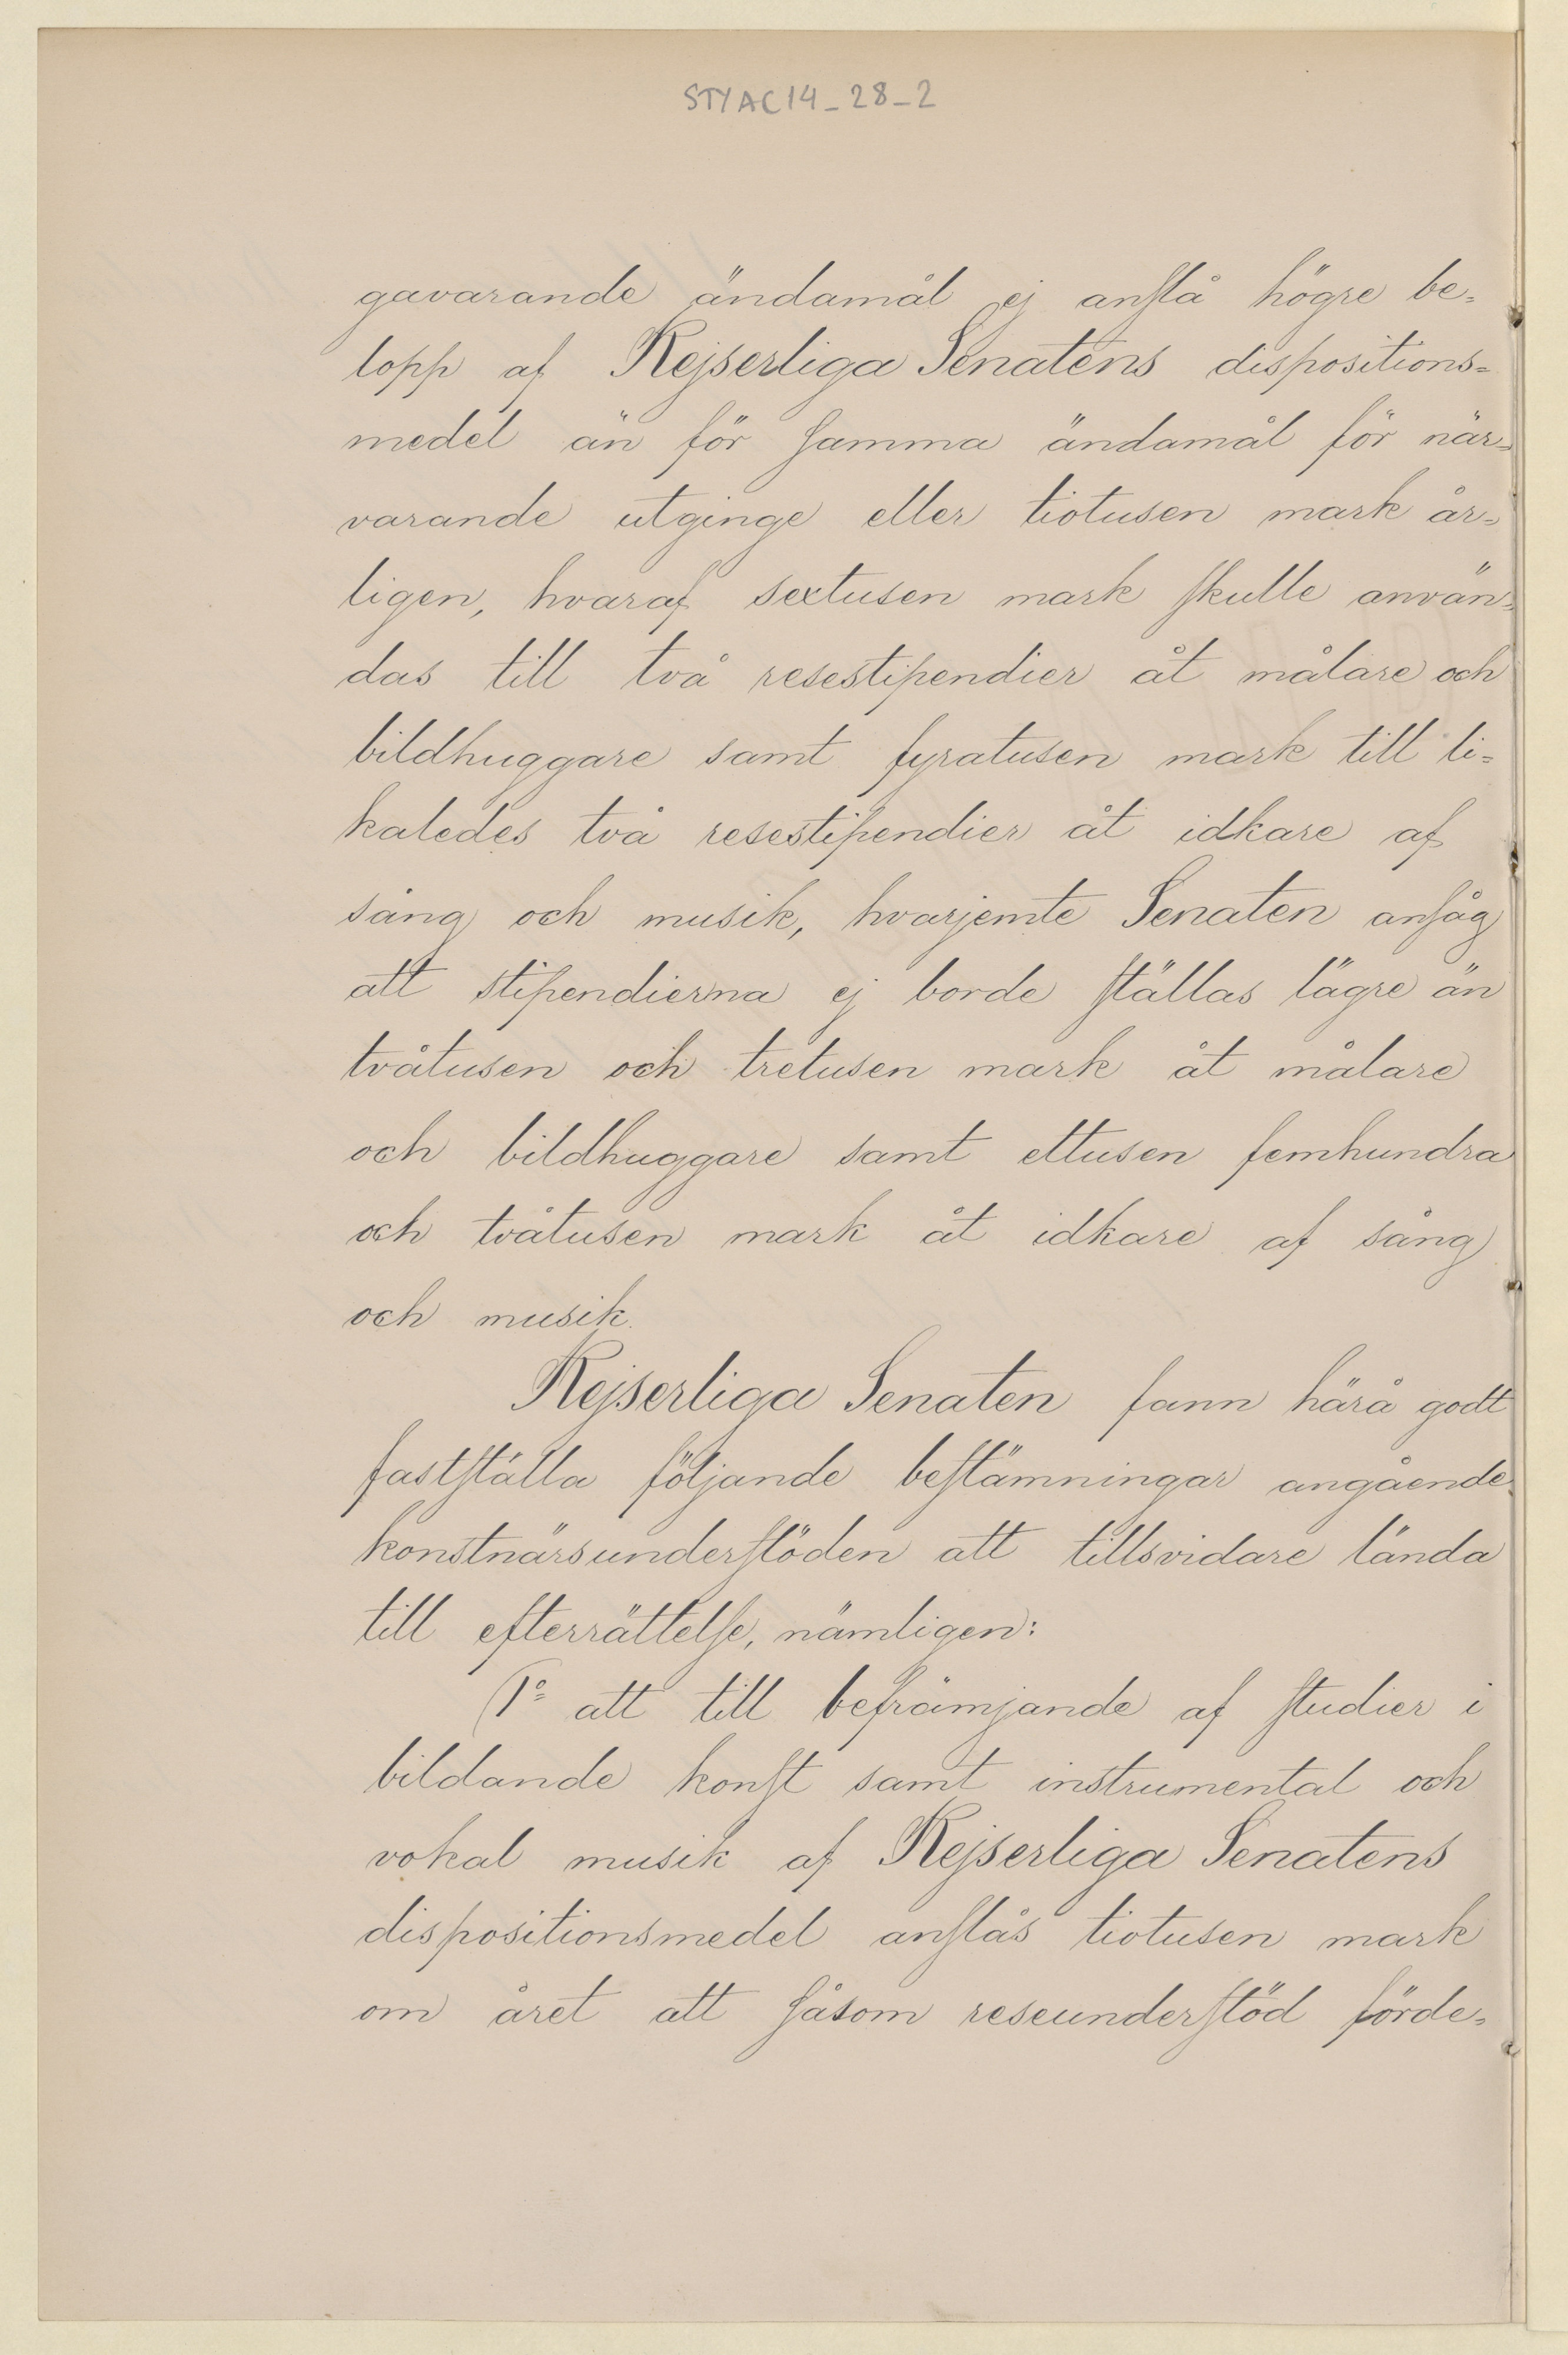 STYAC14_28_2
gavarande ändamål ej anslå högre be-
lopp af Kejserliga Senatens dispositions-
medel än för samma ändamål för när-
varande utginge eller tiotusen mark år-
ligen, hvaraf sextusen mark skulle använ-
das till två resestipendier åt målare och
bildhuggare samt fyratusen mark till li-
kaledes två resestipendier åt idkare af
sång och musik, hvarjemte Senaten ansåg
att stipendierna ej borde ställas lägre än
tvåtusen och tretusen mark åt målare
och bildhuggare samt ettusen femhundra
och tvåtusen mark åt idkare af sång
och musik.
Kejserliga Senaten fann härå godt
fastställa följande bestämningar angående
konstnärsunderstöden att tillsvidare lända
till efterrättelse, nämligen:
(1º att till befrämjande af studier i
bildande konst samt instrumental och
vokal musik af Kejserliga Senatens
dispositionsmedel anslås tiotusen mark
om året att såsom reseunderstöd förde-